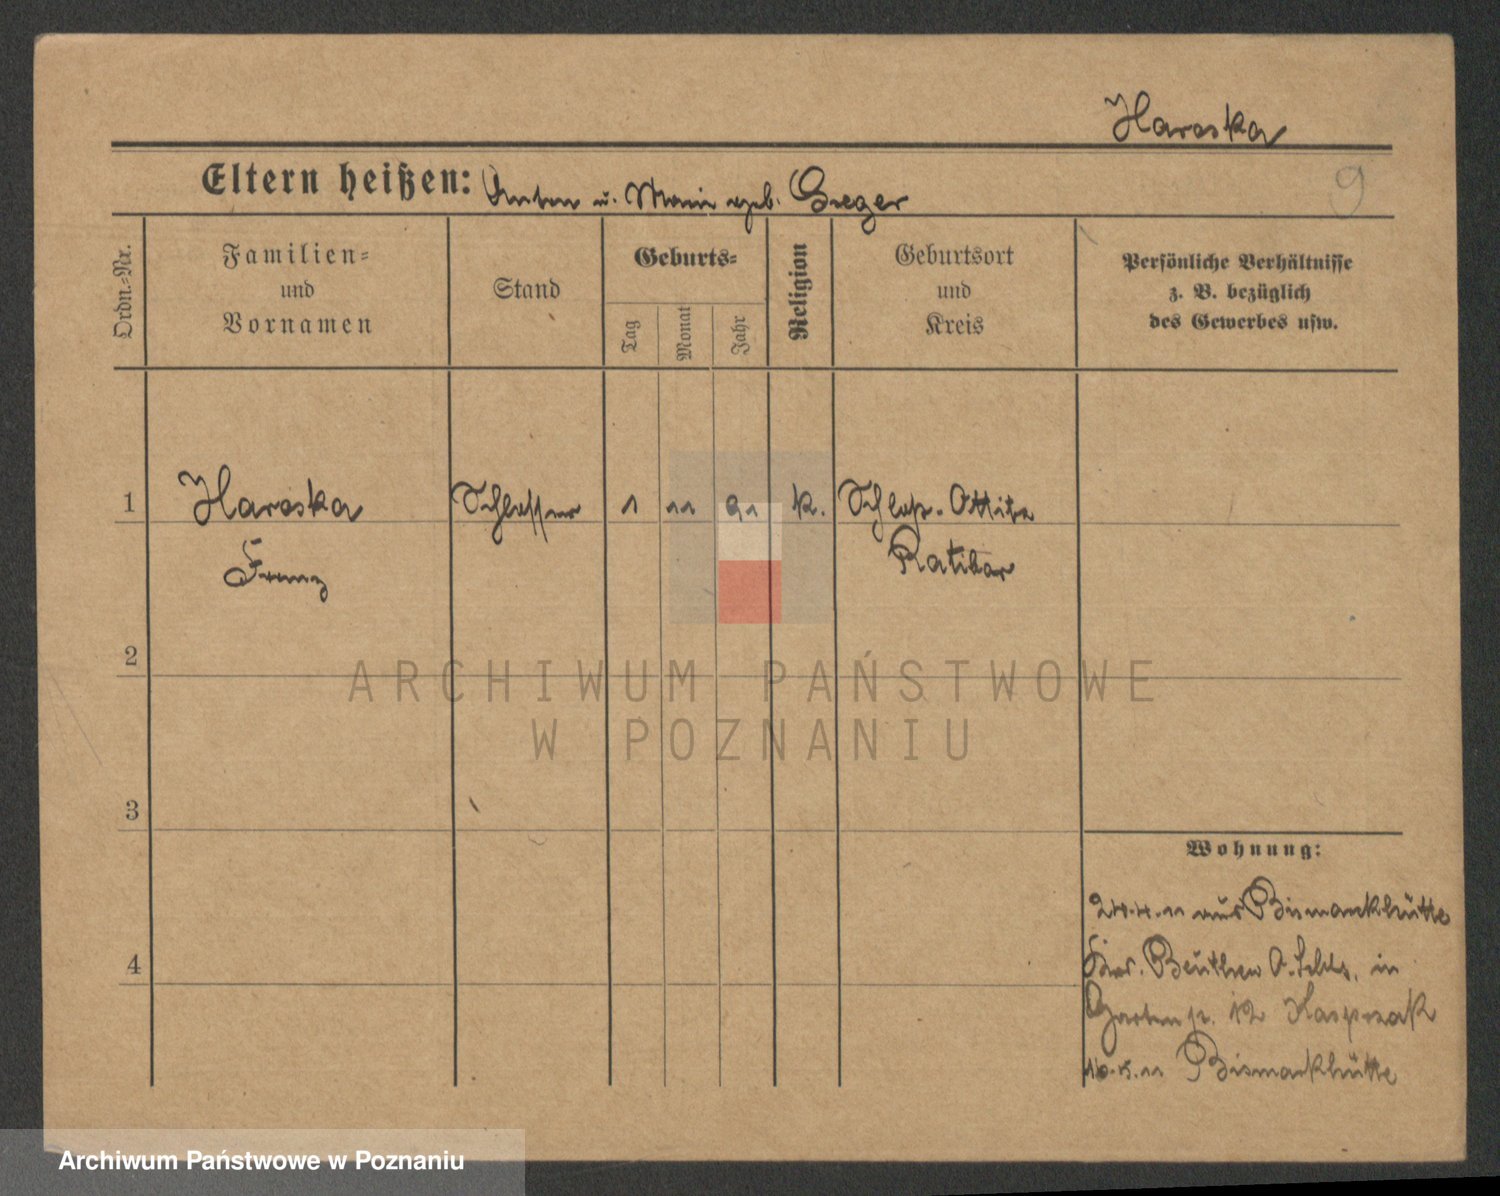 Haroska
Eltern heißen: Anton u. Marie geb. Gieger
9
Ordn.-Nr.
Familien-
und
Vornamen
Stand
Geburts-
Tag
Monat
Jahr
Religion
Geburtsort
und
Kreis
Persönliche Verhältnisse
z. B. bezüglich
des Gewerbes usw.
1 Haroska Schlosser 1 11 91 k. Schloß-Ottitz
Franz Ratibor
2
3
4
Wohnung:
24.4.11 aus Bismarckhütte
Krs. Beuthen O. Schls. in
Gartenstr. 12 Kasprzak
16.5.11 Bismarkhütte
ARCHIWUM PAŃSTWOWE
W POZNANIU
Archiwum Państwowe w Poznaniu